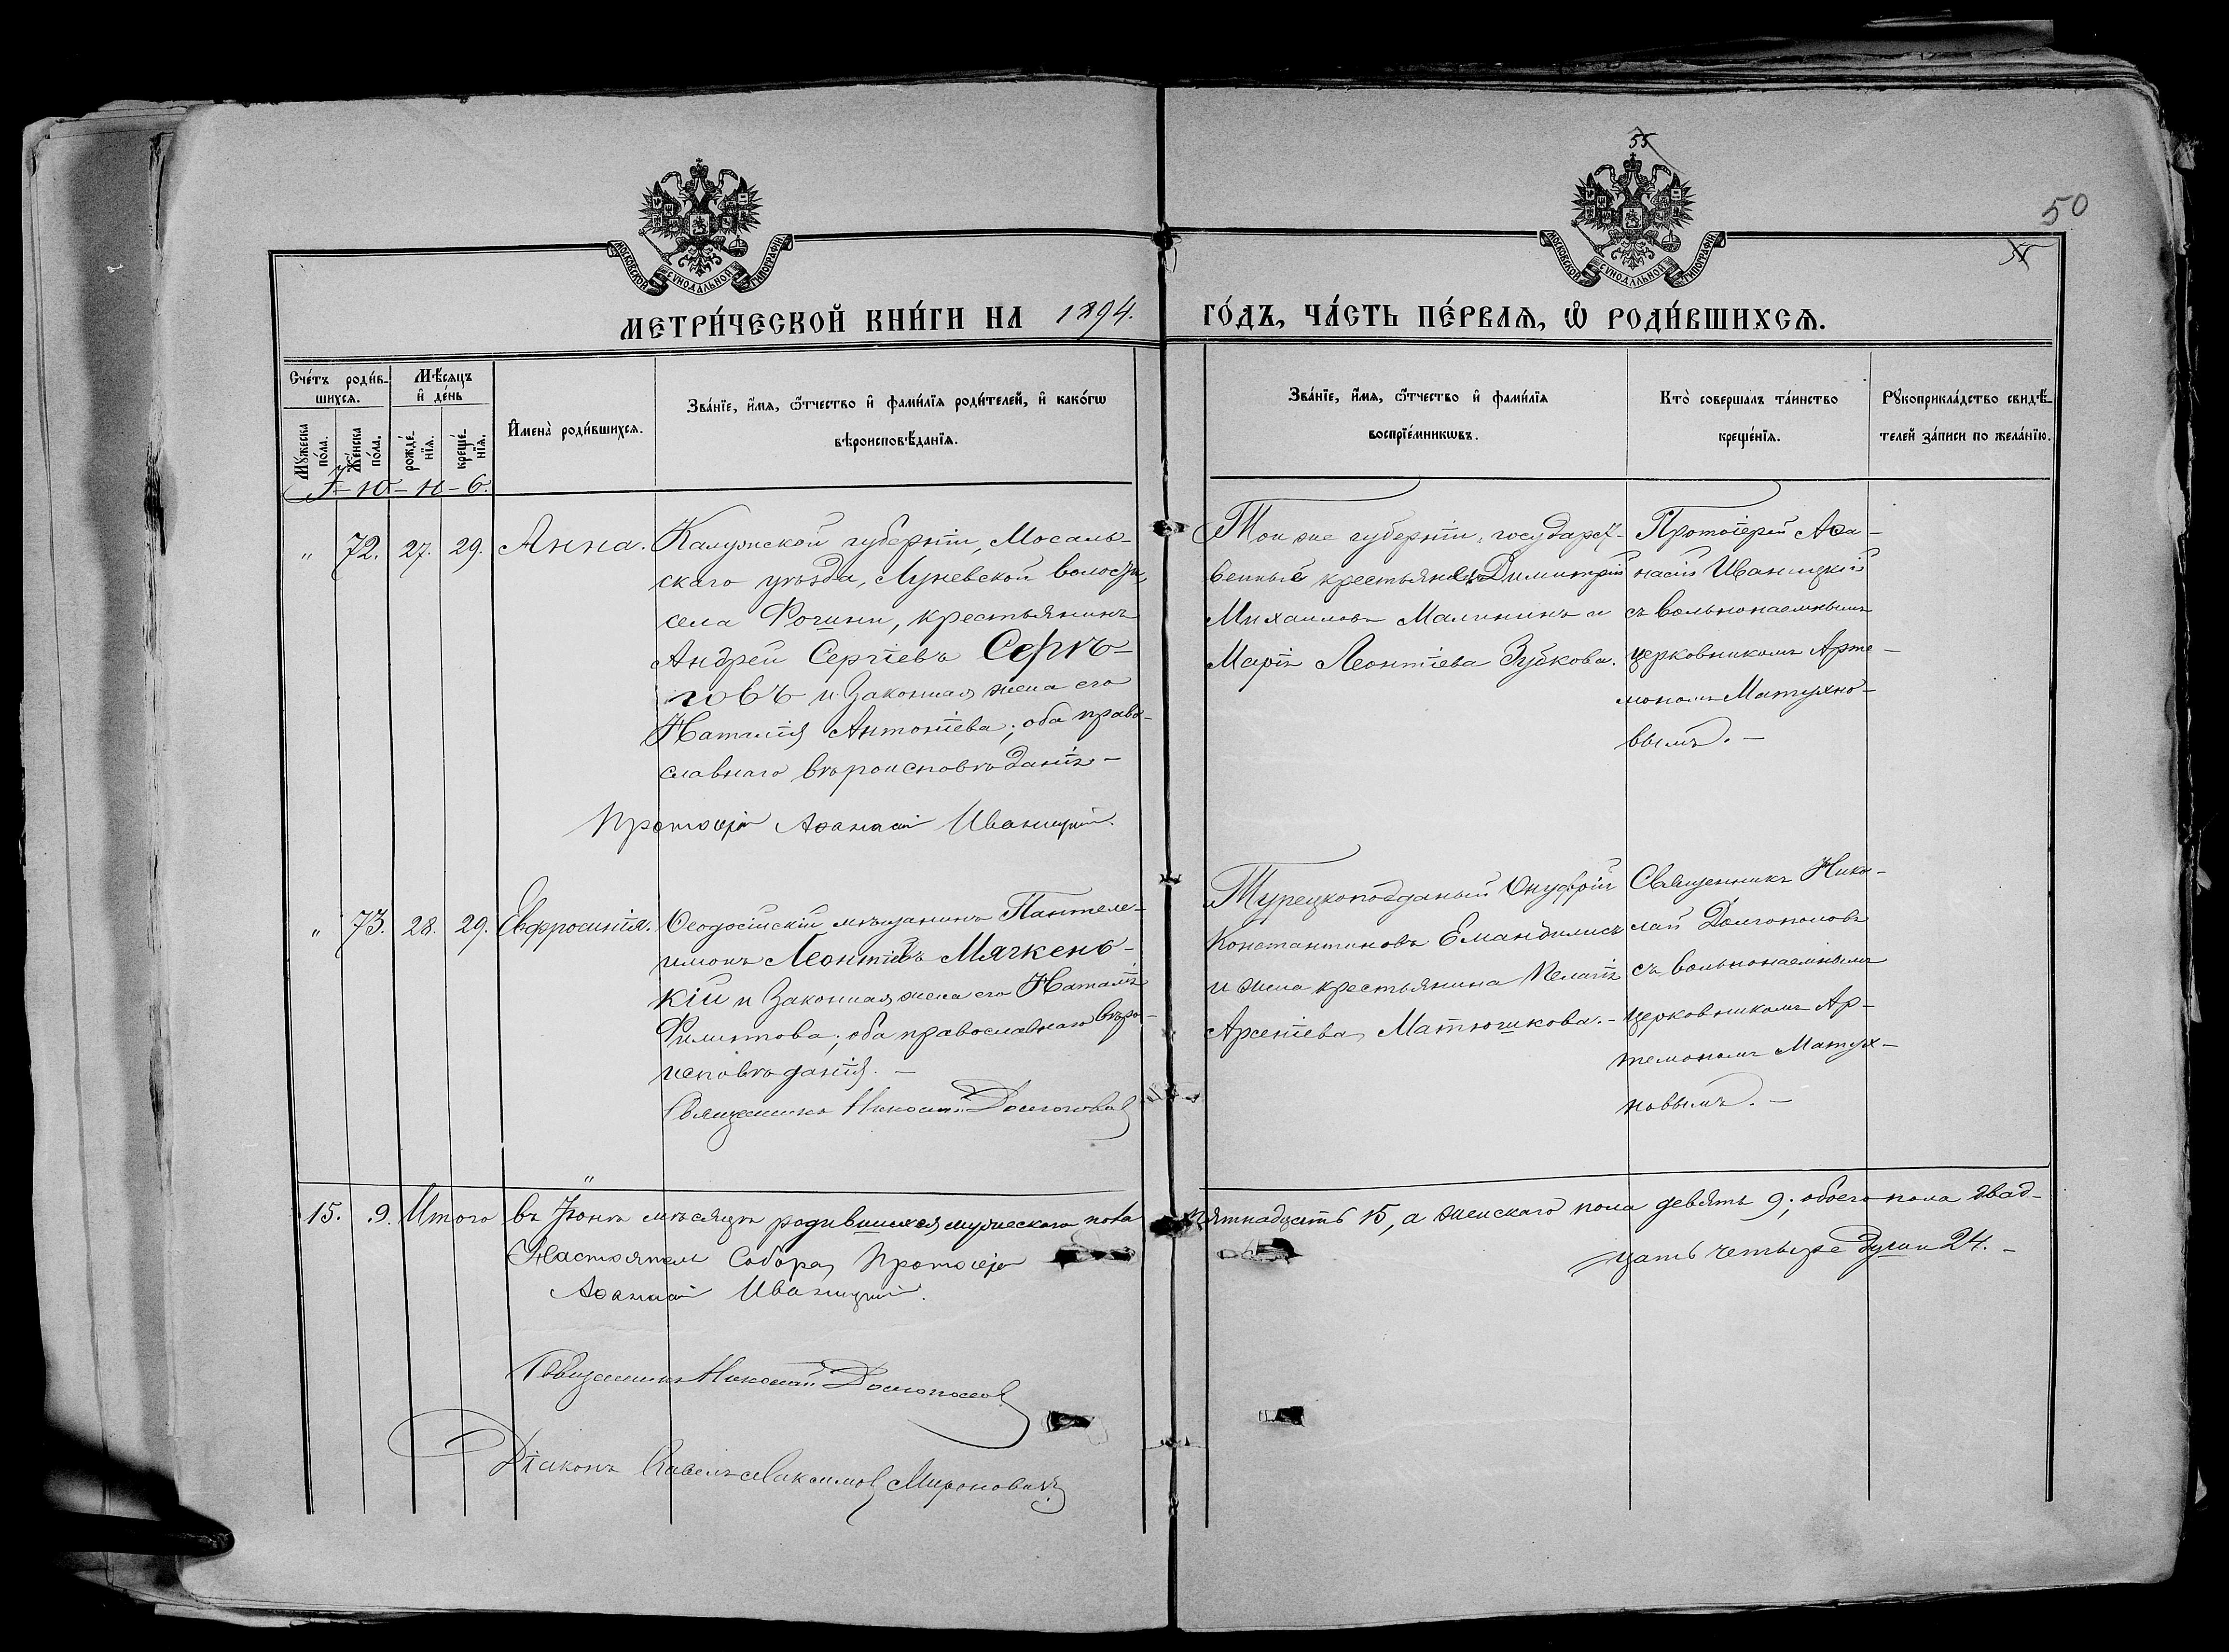 55
50
МОСКОВСКОЙ СѴНОДАЛЬНОЙ ТИПОГРАФІИ
МОСКОВСКОЙ СѴНОДАЛЬНОЙ ТИПОГРАФІИ
МЕТРИ́ЧЕСКОЙ КНИ́ГИ НА 1894. ГО́ДЪ, ЧА́СТЬ ПЕ́РВАѦ, Ѽ РОДИ́ВШИХСѦ.
Сче́тъ роди́в-
шихсѧ.
Му́жеска по́ла.
Же́нска по́ла.
Мѣ́сѧцъ и҆ де́нь
рожде́-нїѧ.
креще́-нїѧ.
И҆мена̀ роди́вшихсѧ.
Зва́нїе, и҆́мѧ, ѻ҆́тчество и҆ фами́лїѧ роди́телей, и҆ како́гѡ
вѣроисповѣ́данїѧ.
Зва́нїе, и҆́мѧ, ѻ҆́тчество и҆ фами́лїѧ
воспрїе́мникѡвъ.
Кто̀ соверша́лъ та́инство
креще́нїѧ.
Рꙋкоприкла́дство свидѣ́-
телей за́писи по жела́нїю.
І - Ю - Н - Ь.
" 72. 27. 29. Анна.
Калужской губерніи, Мосаль-
скаго уѣзда, волости,
села крестьянинъ
Андрей Сергіевъ Серѣ-
говъ и законная жена его
Наталія Антоніева; оба право-
славнаго вѣроисповѣданія -
Протоіерей Аѳанасій Иваницкій.
Той же губерніи, государст-
венные крестьяне: Димитрій
Михаиловъ Малининъ и
Марія Леонтіева Зубкова.
Протоіерей Аѳа-
насій Иваницкій
съ вольнонаемнымъ
церковникомъ Арте-
мономъ Матухно-
вымъ. -
" 73. 28. 29. Евфросинія.
Ѳеодосійскій мѣщанинъ Пантеле-
имонъ Леонтіевъ Мягкень-
кій и законная жена его Наталія
Филиппова; оба православнаго вѣро-
исповѣданія. -
Священникъ Николай Долгополовъ
Турецкоподданый Онуфрій
Константиновъ Емандилисъ
и жена крестьянина Пелагія
Арсеніева Матюшкова. -
Священникъ Нико-
лай Долгополовъ
съ вольнонаемнымъ
церковникомъ Ар-
темономъ Матух-
новымъ. -
15. 9. Итого въ Іюнѣ мѣсяцѣ родившихся мужескаго пола пятнадцать 15, а женскаго пола девять 9; обоего пола двад-
цать четыре души 24. -
Настоятель Собора, Протоіерей
Аѳанасій Иваницкій.
Священникъ Николай Долгополовъ
Діаконъ Павелъ Максимовъ Мироновичъ